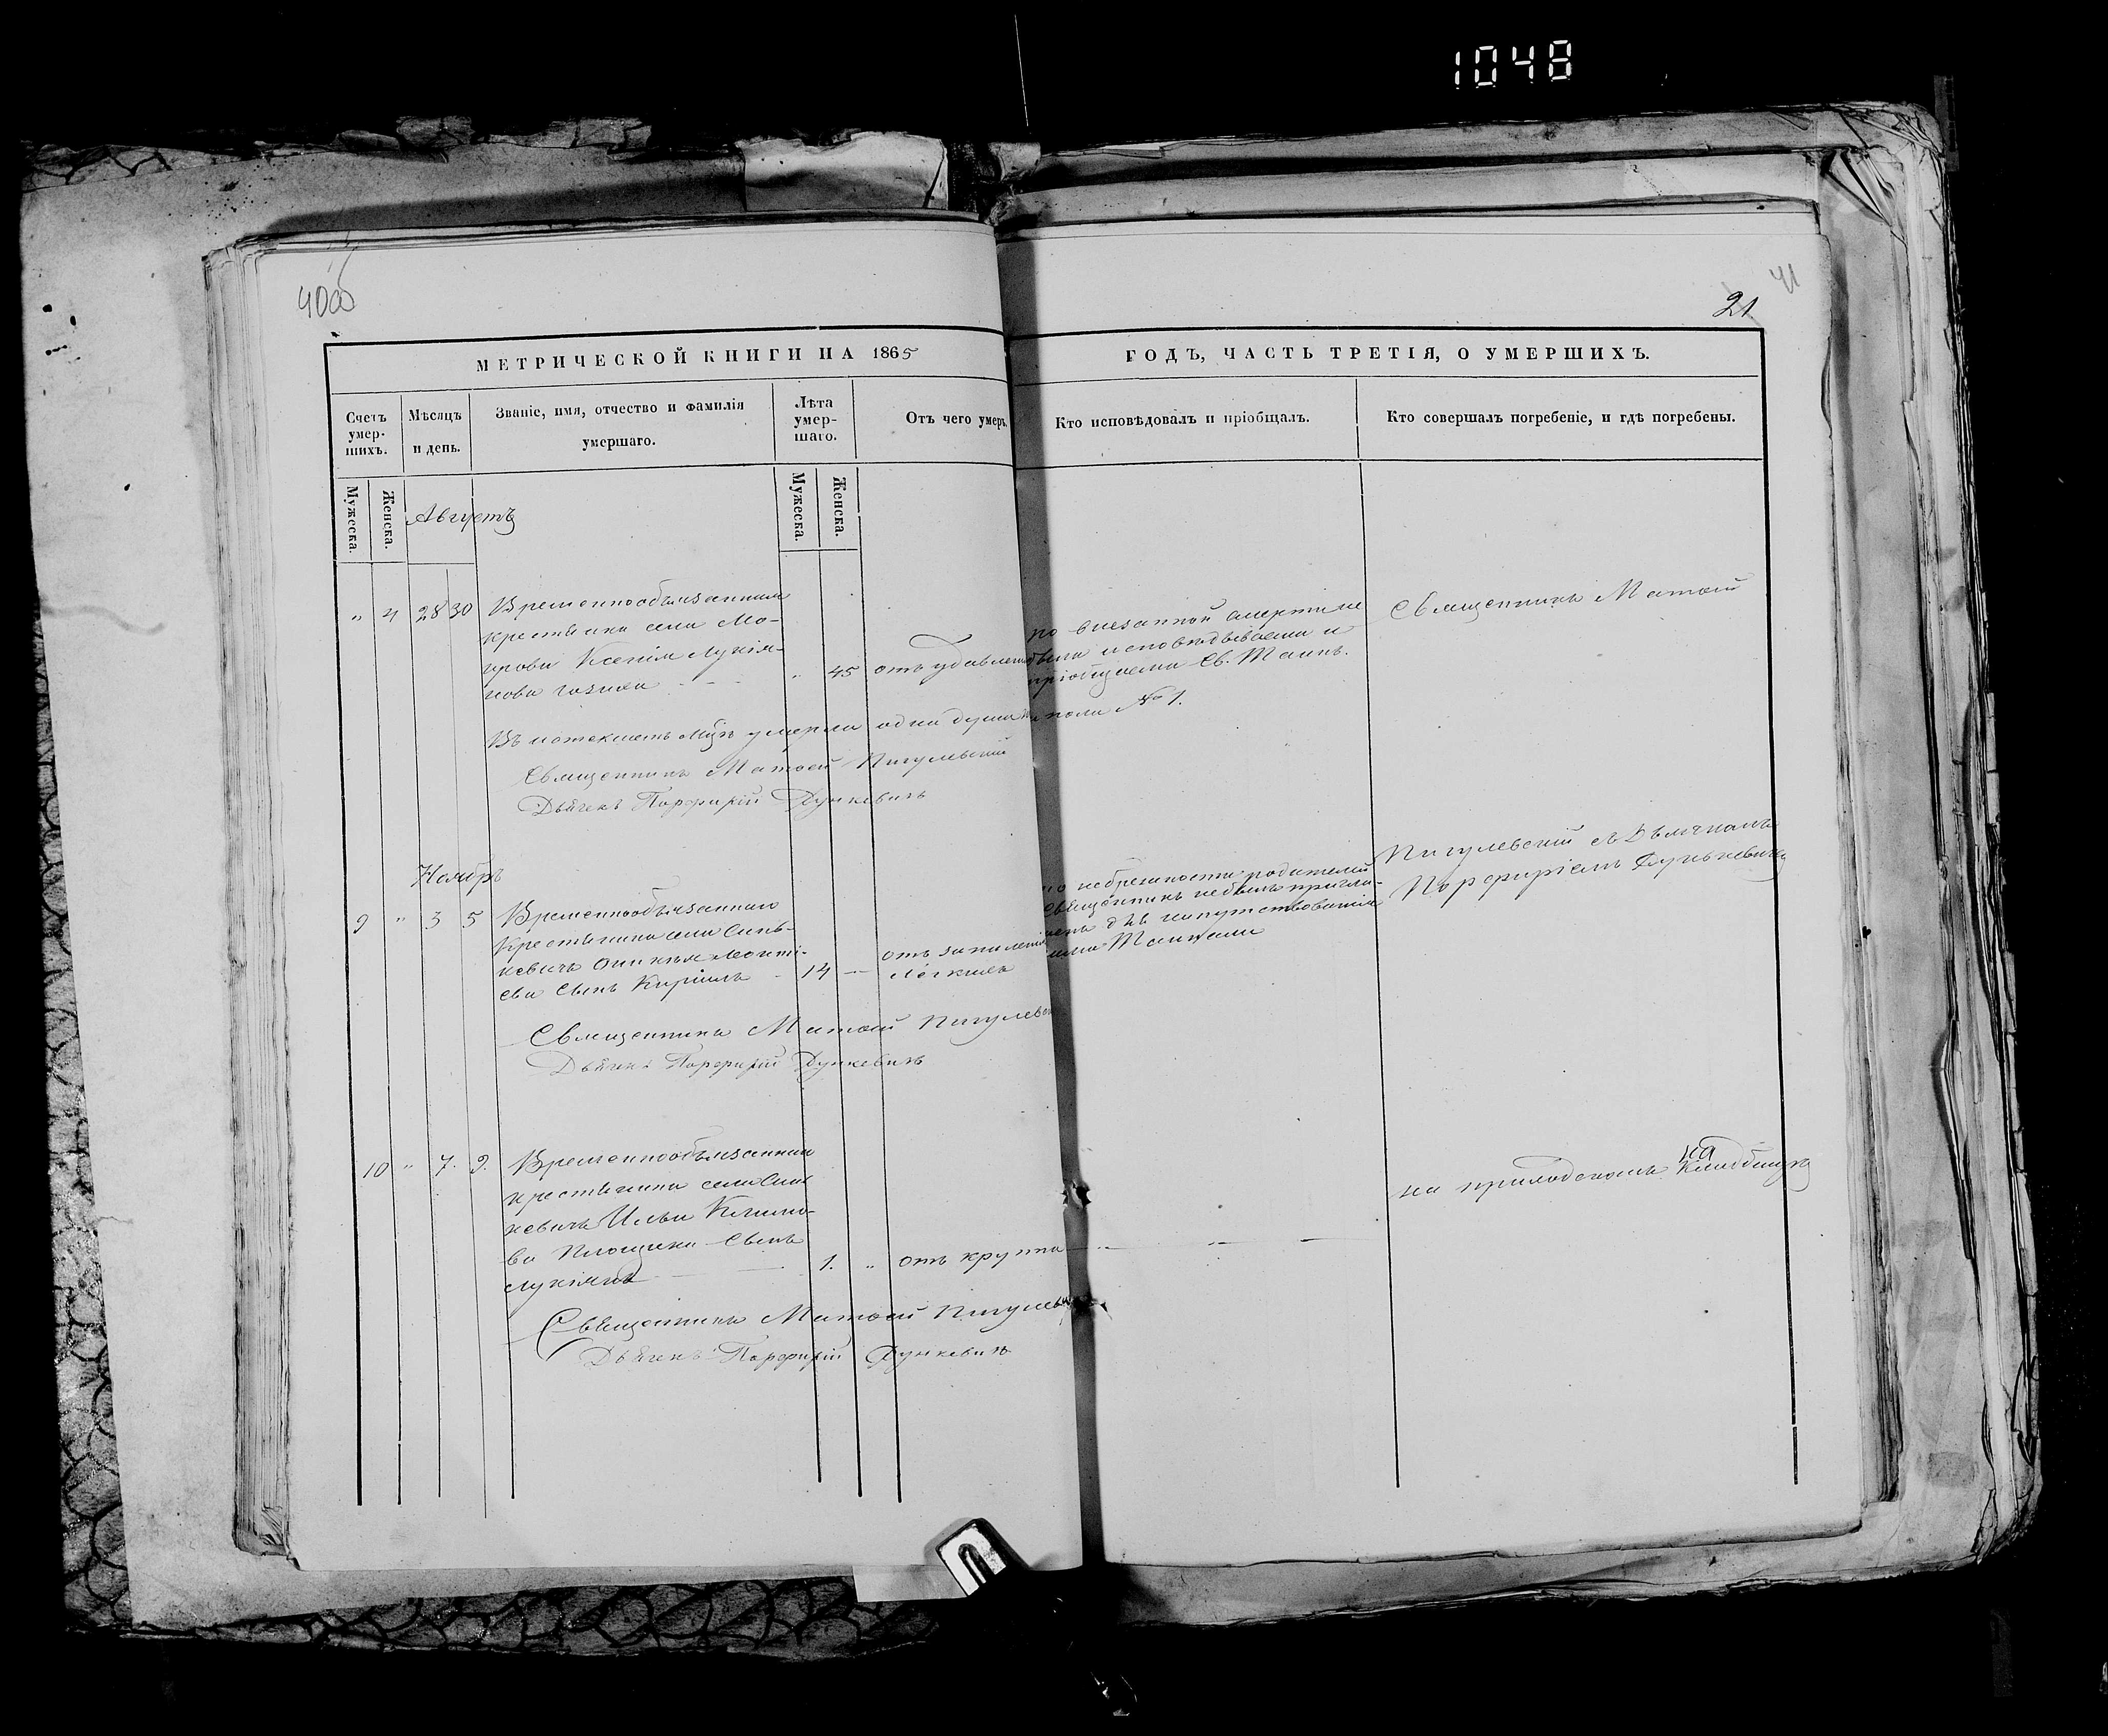 1048
400б
21
41
МЕТРИЧЕСКОЙ КНИГИ НА 1865
ГОДЪ, ЧАСТЬ ТРЕТІЯ, О УМЕРШИХЪ.
Счетъ умер-шихъ.
Мѣсяцъ и день.
Званіе, имя, отчество и фамилія умершаго.
Лѣта умер-шаго.
Отъ чего умеръ.
Кто исповѣдовалъ и пріобщалъ.
Кто совершалъ погребеніе, и гдѣ погребены.
Мужеска.
Женска.
Мужеска.
Женска.
Августъ
" 4 28 30 Временнообязанная
крестьянка села Мо-
крова Ксенія Лукія-
нова
" 45 отъ удавленія
по внезапной смерти не
была исповѣдываема и
пріобщаема Св. Таинъ.
Священникъ Матѳей
Въ истекшемъ мцѣ умерла одна душа жен. пола № 1.
Священникъ Матѳей Пигулевскій
Дьячекъ Порфирій Дункевичъ
Ноябрь
9 " 3 5 Временнообязаннаго
Крестьянина села Синь-
кевичъ
сынъ Кирилъ 14 —
отъ запаленія
легкихъ
по небрежности родителей
Священникъ небылъ пригла-
шенъ для напутствованія
Таинами
Пигулевскій съ Дьячкомъ
Порфиріемъ Дунькевичемъ
Священникъ Матѳей Пигулевскій
Дьячекъ Порфирій Дункевичъ
10 " 7. 9. Временнообязаннаго
крестьянина села Синь
кевичъ Ильи Климо-
ва Площика сынъ
Лукіянъ 1. " отъ крупа
на приходскомъ на Кладбищѣ
Священникъ Матѳей Пигулевскій
Дьячекъ Порфирій Дункевичъ